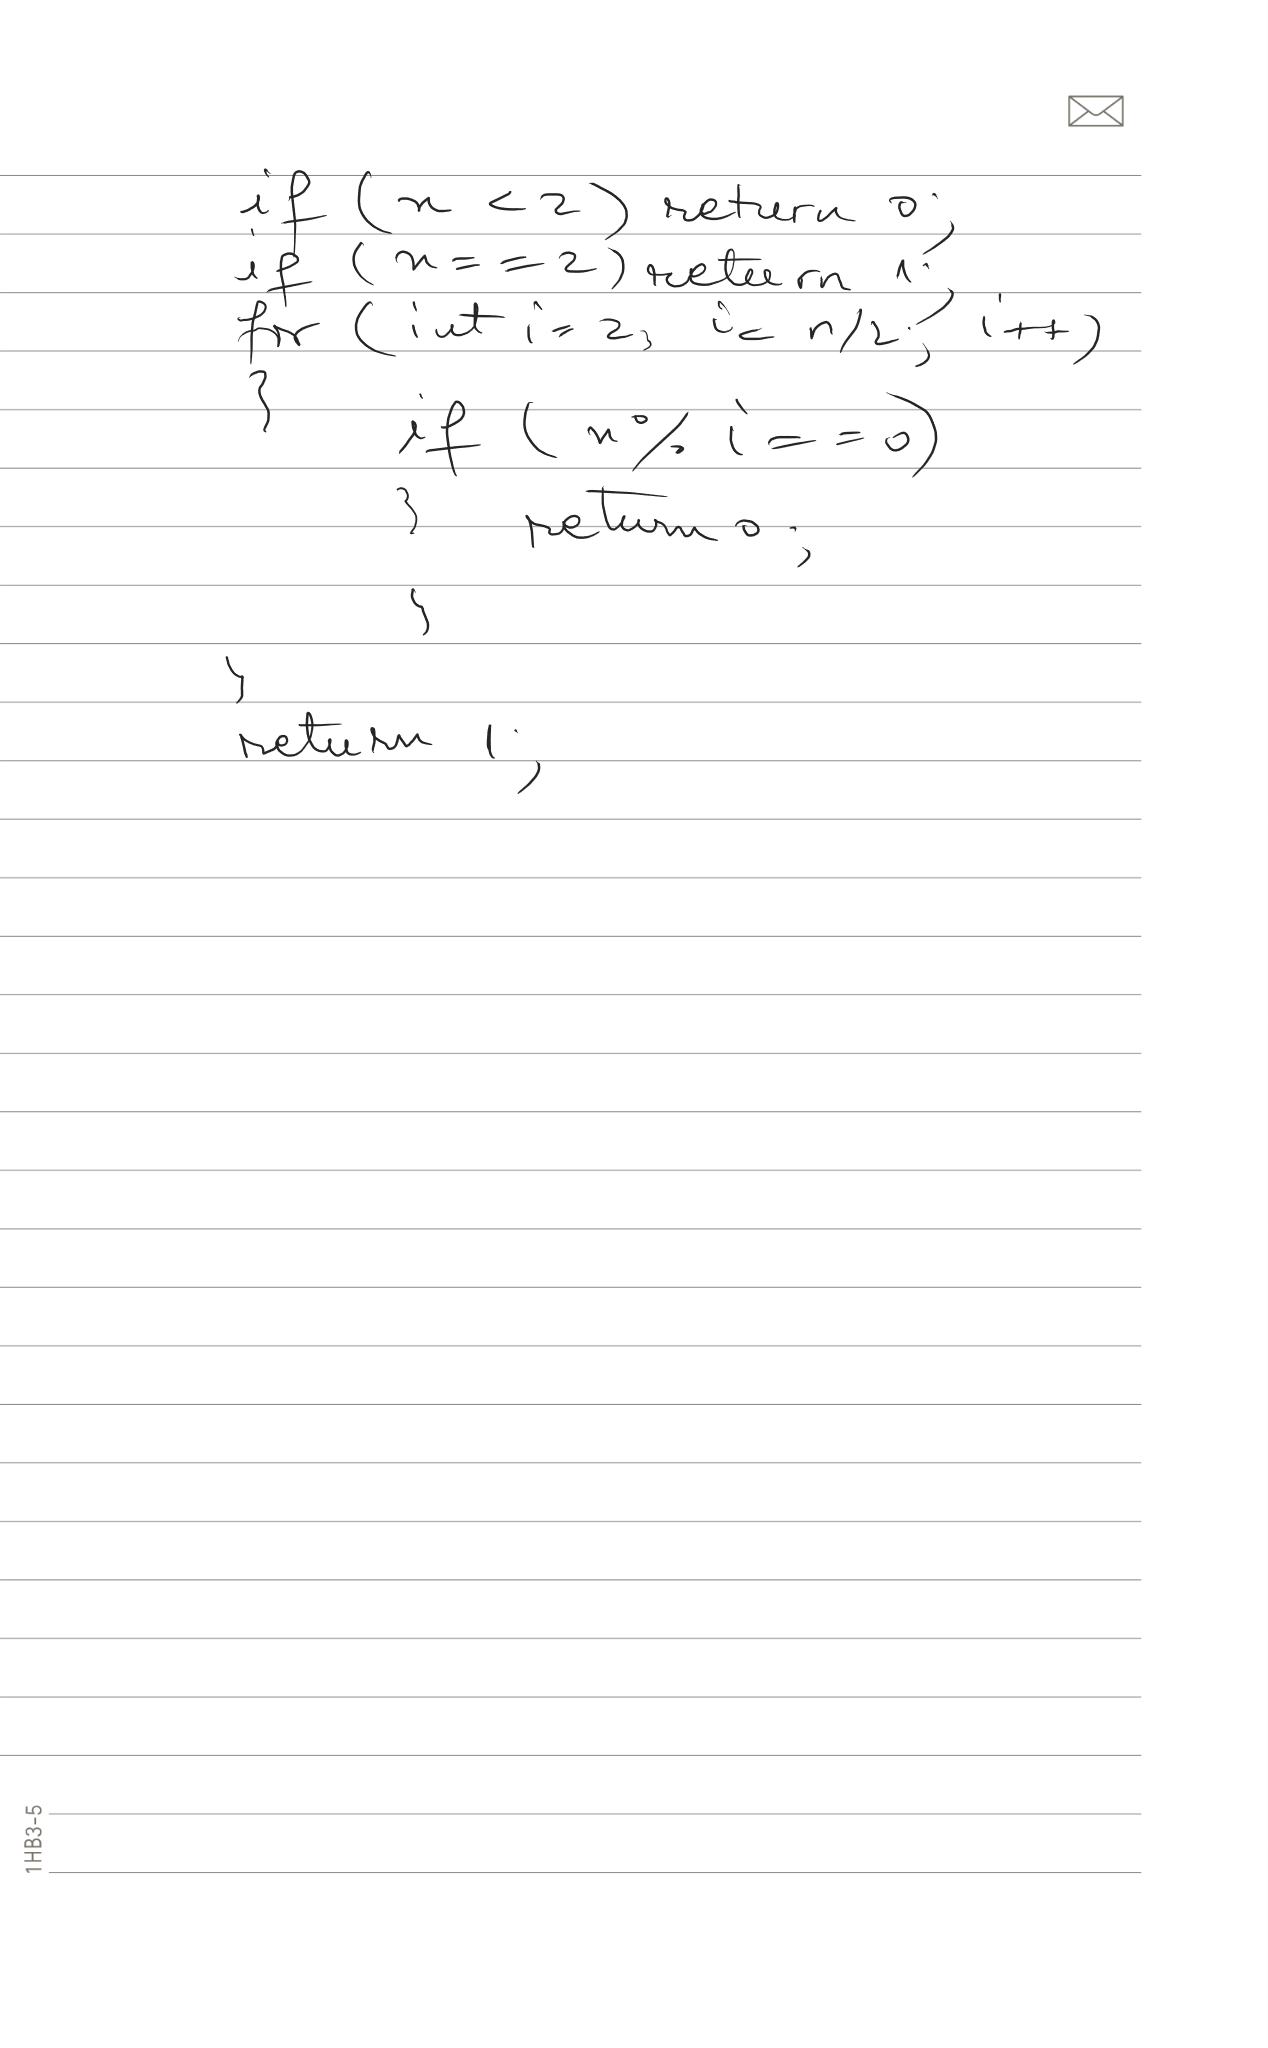 if (n < 2) return 0;
if (n == 2) return 1;
for (int i = 2; i < n/2; i++)
{
if (n % i == 0)
{ return 0;
}
}
return 1;
1HB3-5